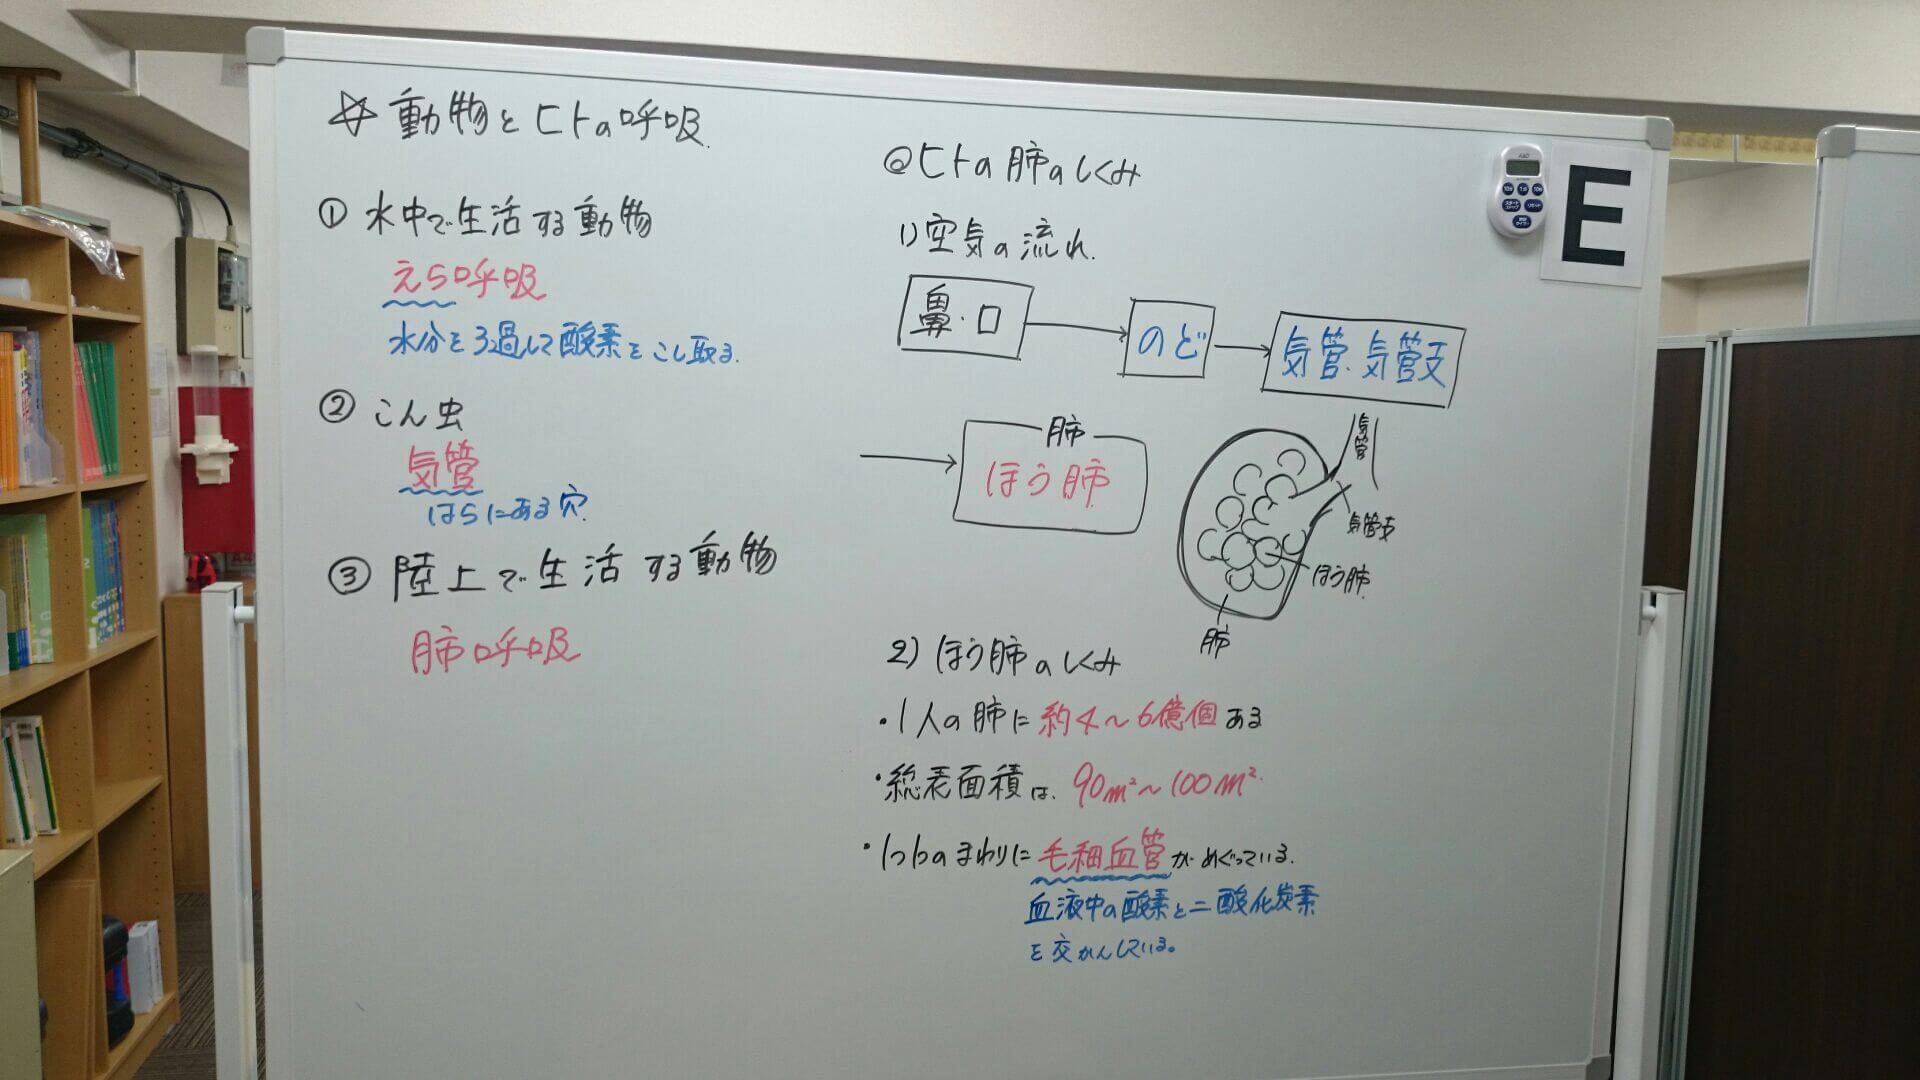 ☆動物とヒトの呼吸.
① 水中で生活する動物
えら呼吸
水分をろ過して酸素をこし取る.
② こん虫
気管
はらにある穴.
③ 陸上で生活する動物
肺呼吸
◎ヒトの肺のしくみ
1)空気の流れ.
鼻・口
のど
気管・気管支
肺
ほう肺
気管
気管支
ほう肺
肺
2) ほう肺のしくみ
・1人の肺に約4〜6億個ある
・総表面積は、90m²〜100m².
・1つ1つのまわりに毛細血管がめぐっている.
血液中の酸素と二酸化炭素
を交かんしている。
E